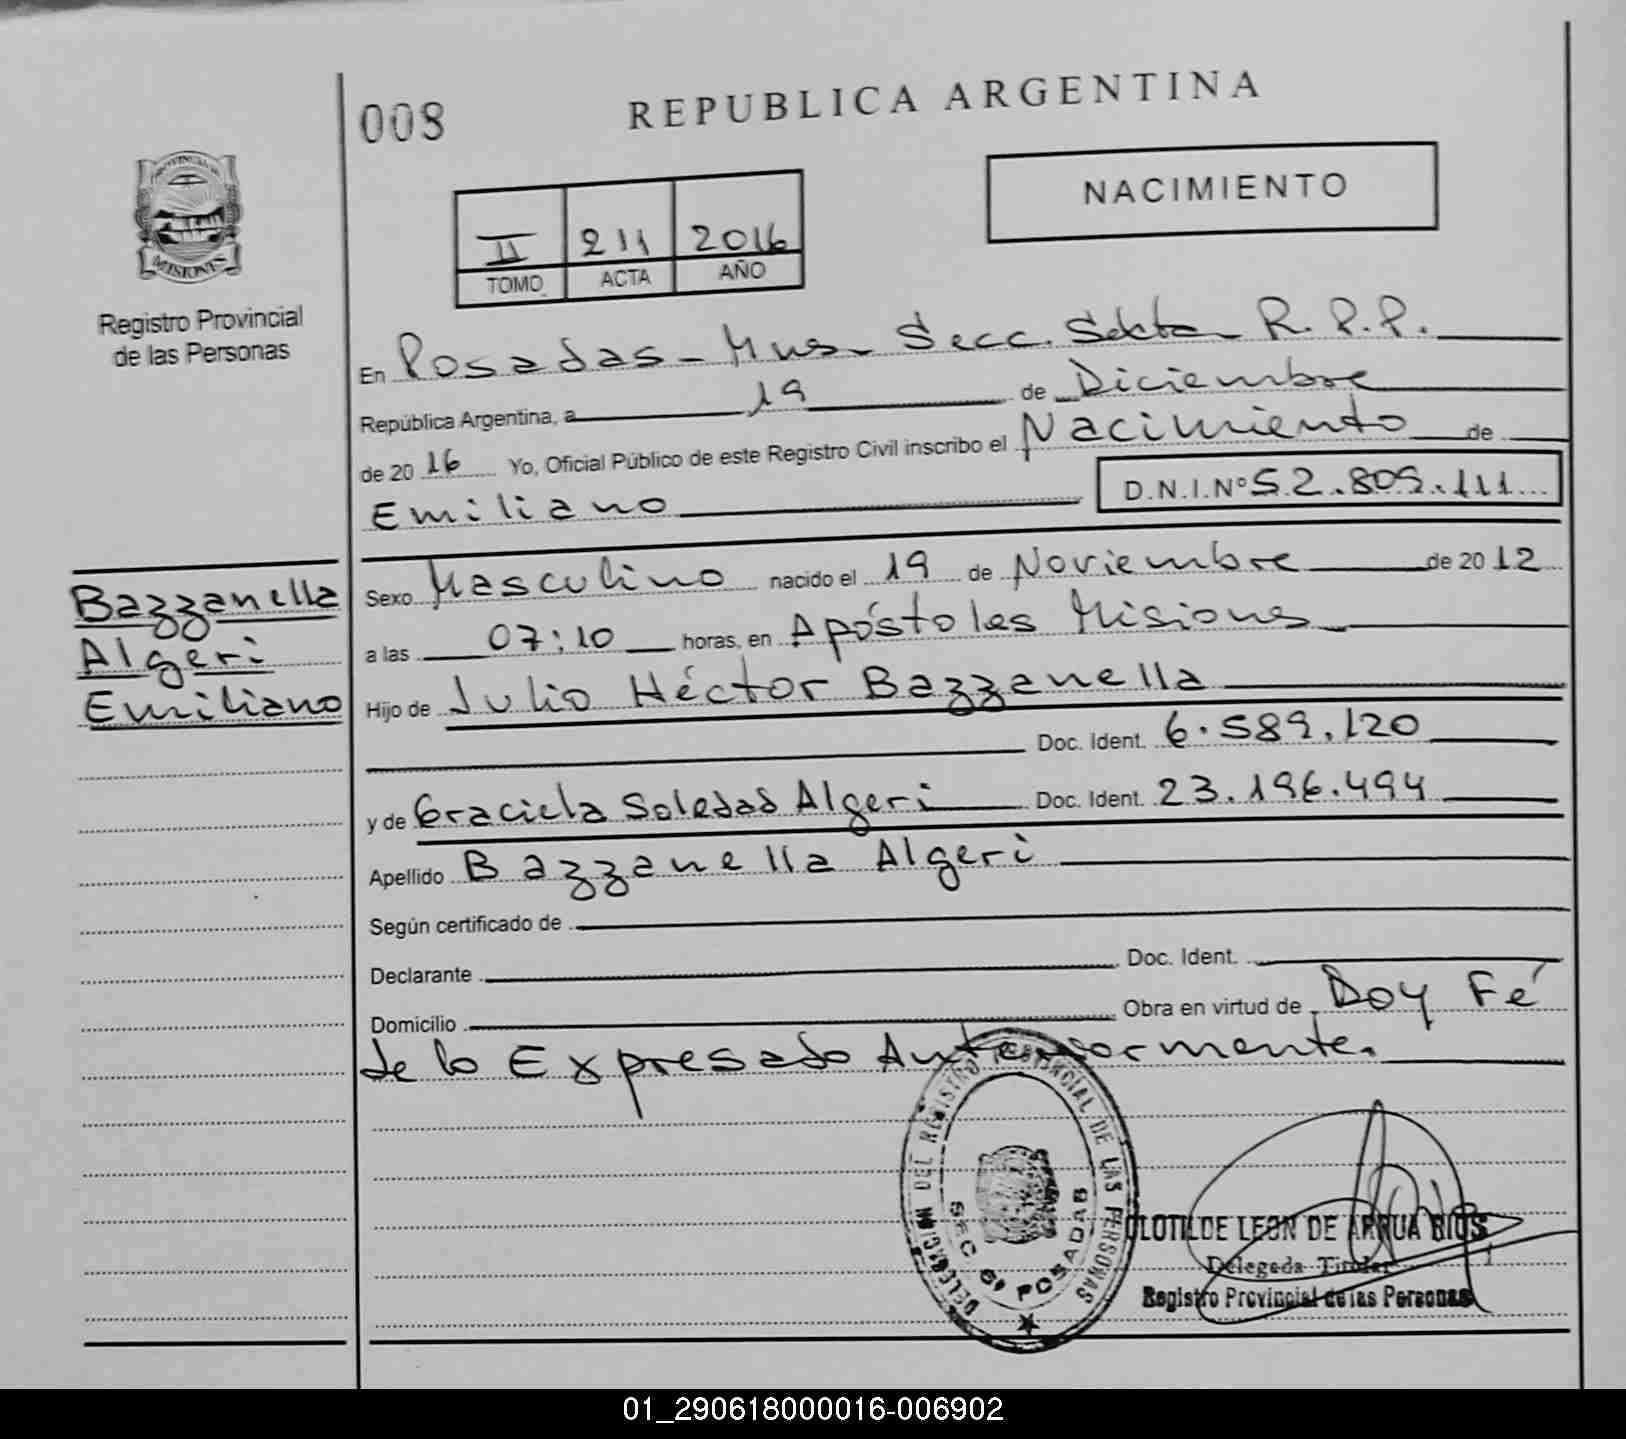 008
REPUBLICA ARGENTINA
PROVINCIA DE
MISIONES
Registro Provincial
de las Personas
II 211 2016
TOMO ACTA AÑO
NACIMIENTO
En Posadas - Mns - Secc. Sexta R.P.P.
República Argentina, a 19 de Diciembre
de 2016 Yo, Oficial Público de este Registro Civil inscribo el Nacimiento de
Emiliano D.N.I.Nº 52.805.111
Bazzanella
Algeri
Emiliano
Sexo Masculino nacido el 19 de Noviembre de 2012
a las 07:10 horas, en Apóstoles Misiones
Hijo de Julio Héctor Bazzanella
Doc. Ident. 6.589.120
y de Graciela Soledad Algeri Doc. Ident. 23.196.494
Apellido Bazzanella Algeri
Según certificado de
Declarante Doc. Ident.
Domicilio Obra en virtud de Doy Fé
de lo Expresado Anteriormente.
DELEGACION DEL REGISTRO PROVINCIAL DE LAS PERSONAS
SEC 6ª POSADAS
CLOTILDE LEON DE ARRUA RIOS
Delegada Titular
Registro Provincial de las Personas
01_290618000016-006902